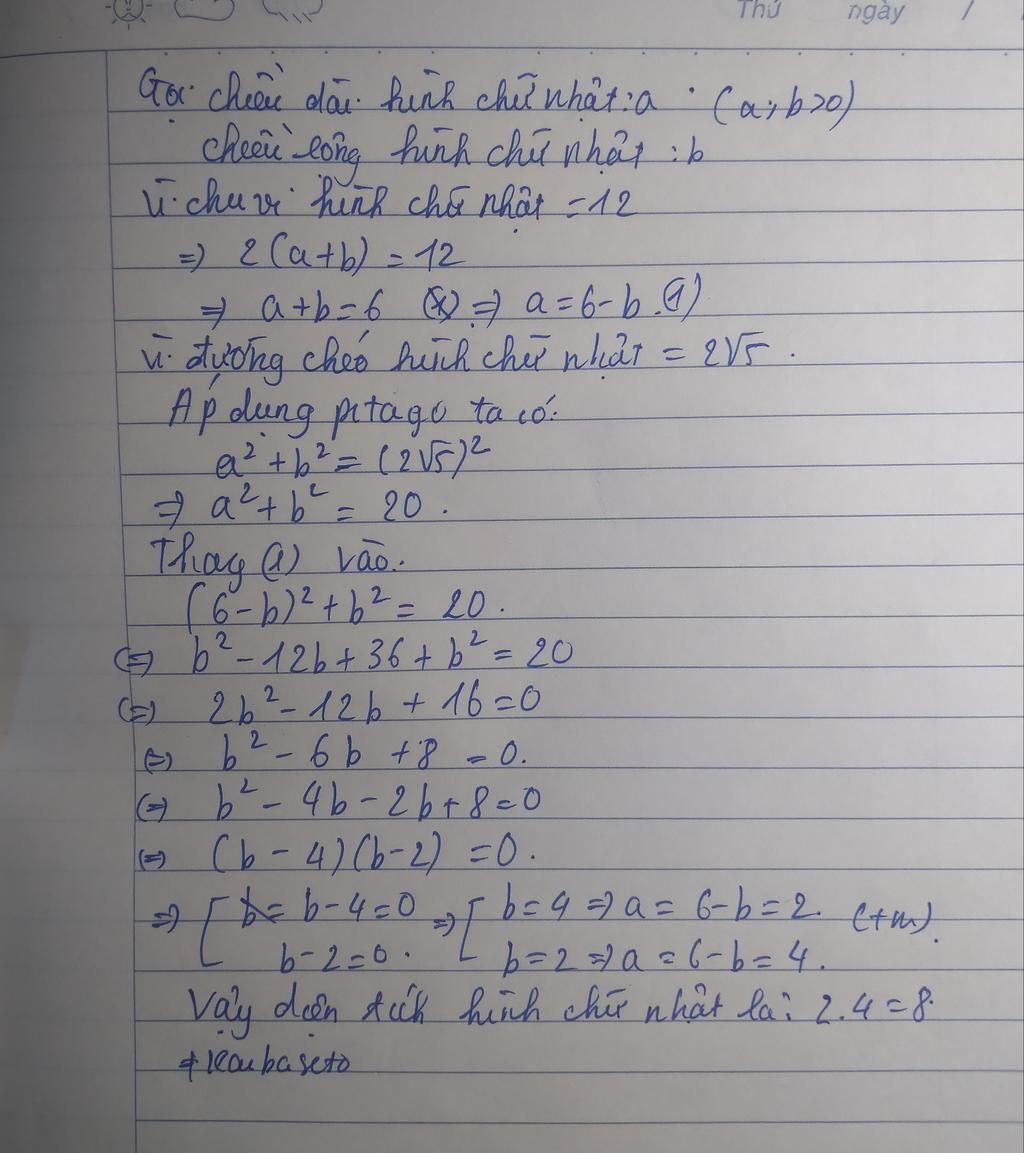 Thứ ngày /
Gọi chiều dài hình chữ nhật: a (a; b>0)
chiều rộng hình chữ nhật : b
Vì chu vi hình chữ nhật = 12
=> 2(a+b) = 12
=> a+b=6 (*) => a=6-b (1)
Vì đường chéo hình chữ nhật = 2√5.
Áp dụng pitago ta có:
a² + b² = (2√5)²
=> a² + b² = 20.
Thay (1) vào.
(6-b)² + b² = 20.
(=) b² - 12b + 36 + b² = 20
(=) 2b² - 12b + 16 = 0
(=) b² - 6b + 8 = 0.
(=) b² - 4b - 2b + 8 = 0
(=) (b - 4)(b-2) = 0.
=> [ b-4=0 => [ b=4 => a = 6-b = 2. (t/m).
b-2=0. b=2 => a = 6-b = 4.
Vậy diện tích hình chữ nhật là: 2.4 = 8